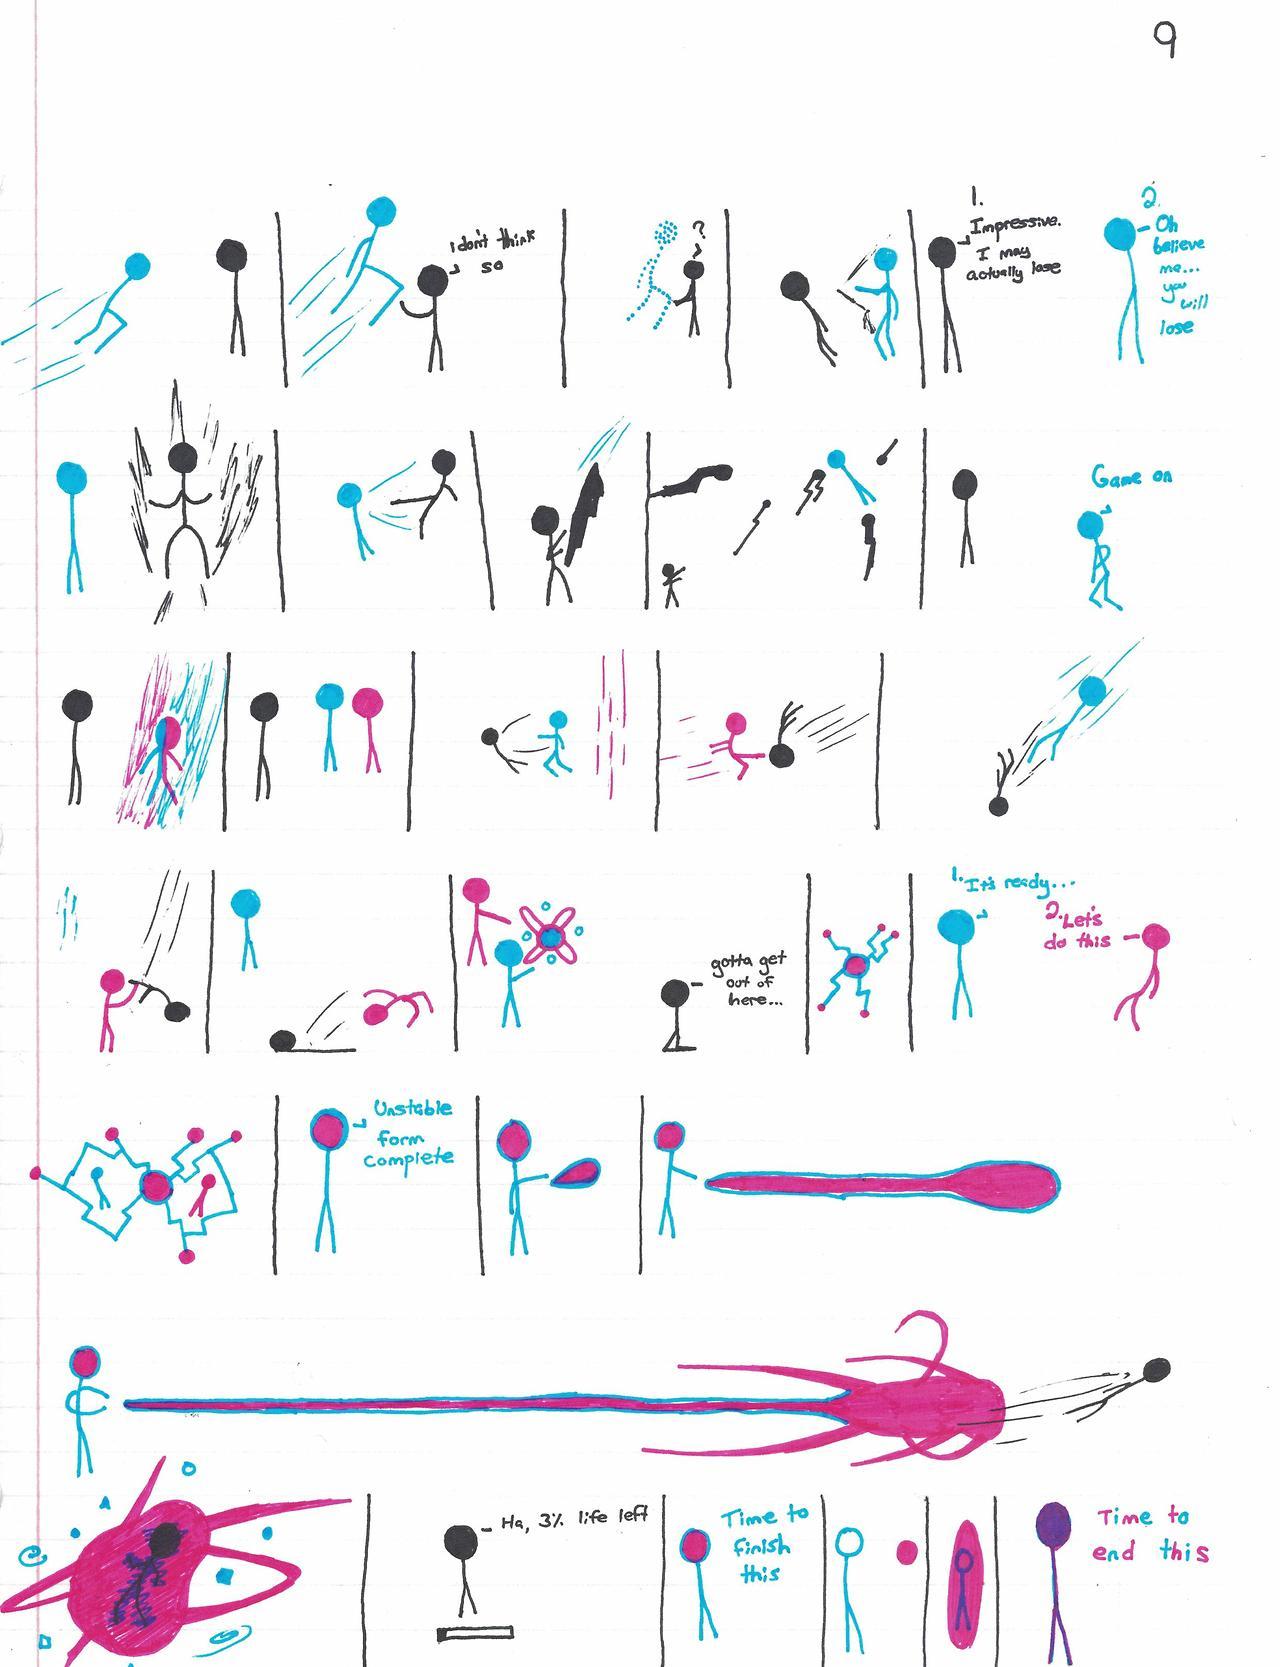 9
I don't think
so
?
1.
Impressive.
I may
actually lose
2.
Oh
believe
me...
you
will
lose
Game on
gotta get
out of
here...
1. It's ready...
2. Let's
do this
Unstable
form
complete
Ha, 3% life left
Time to
finish
this
Time to
end this